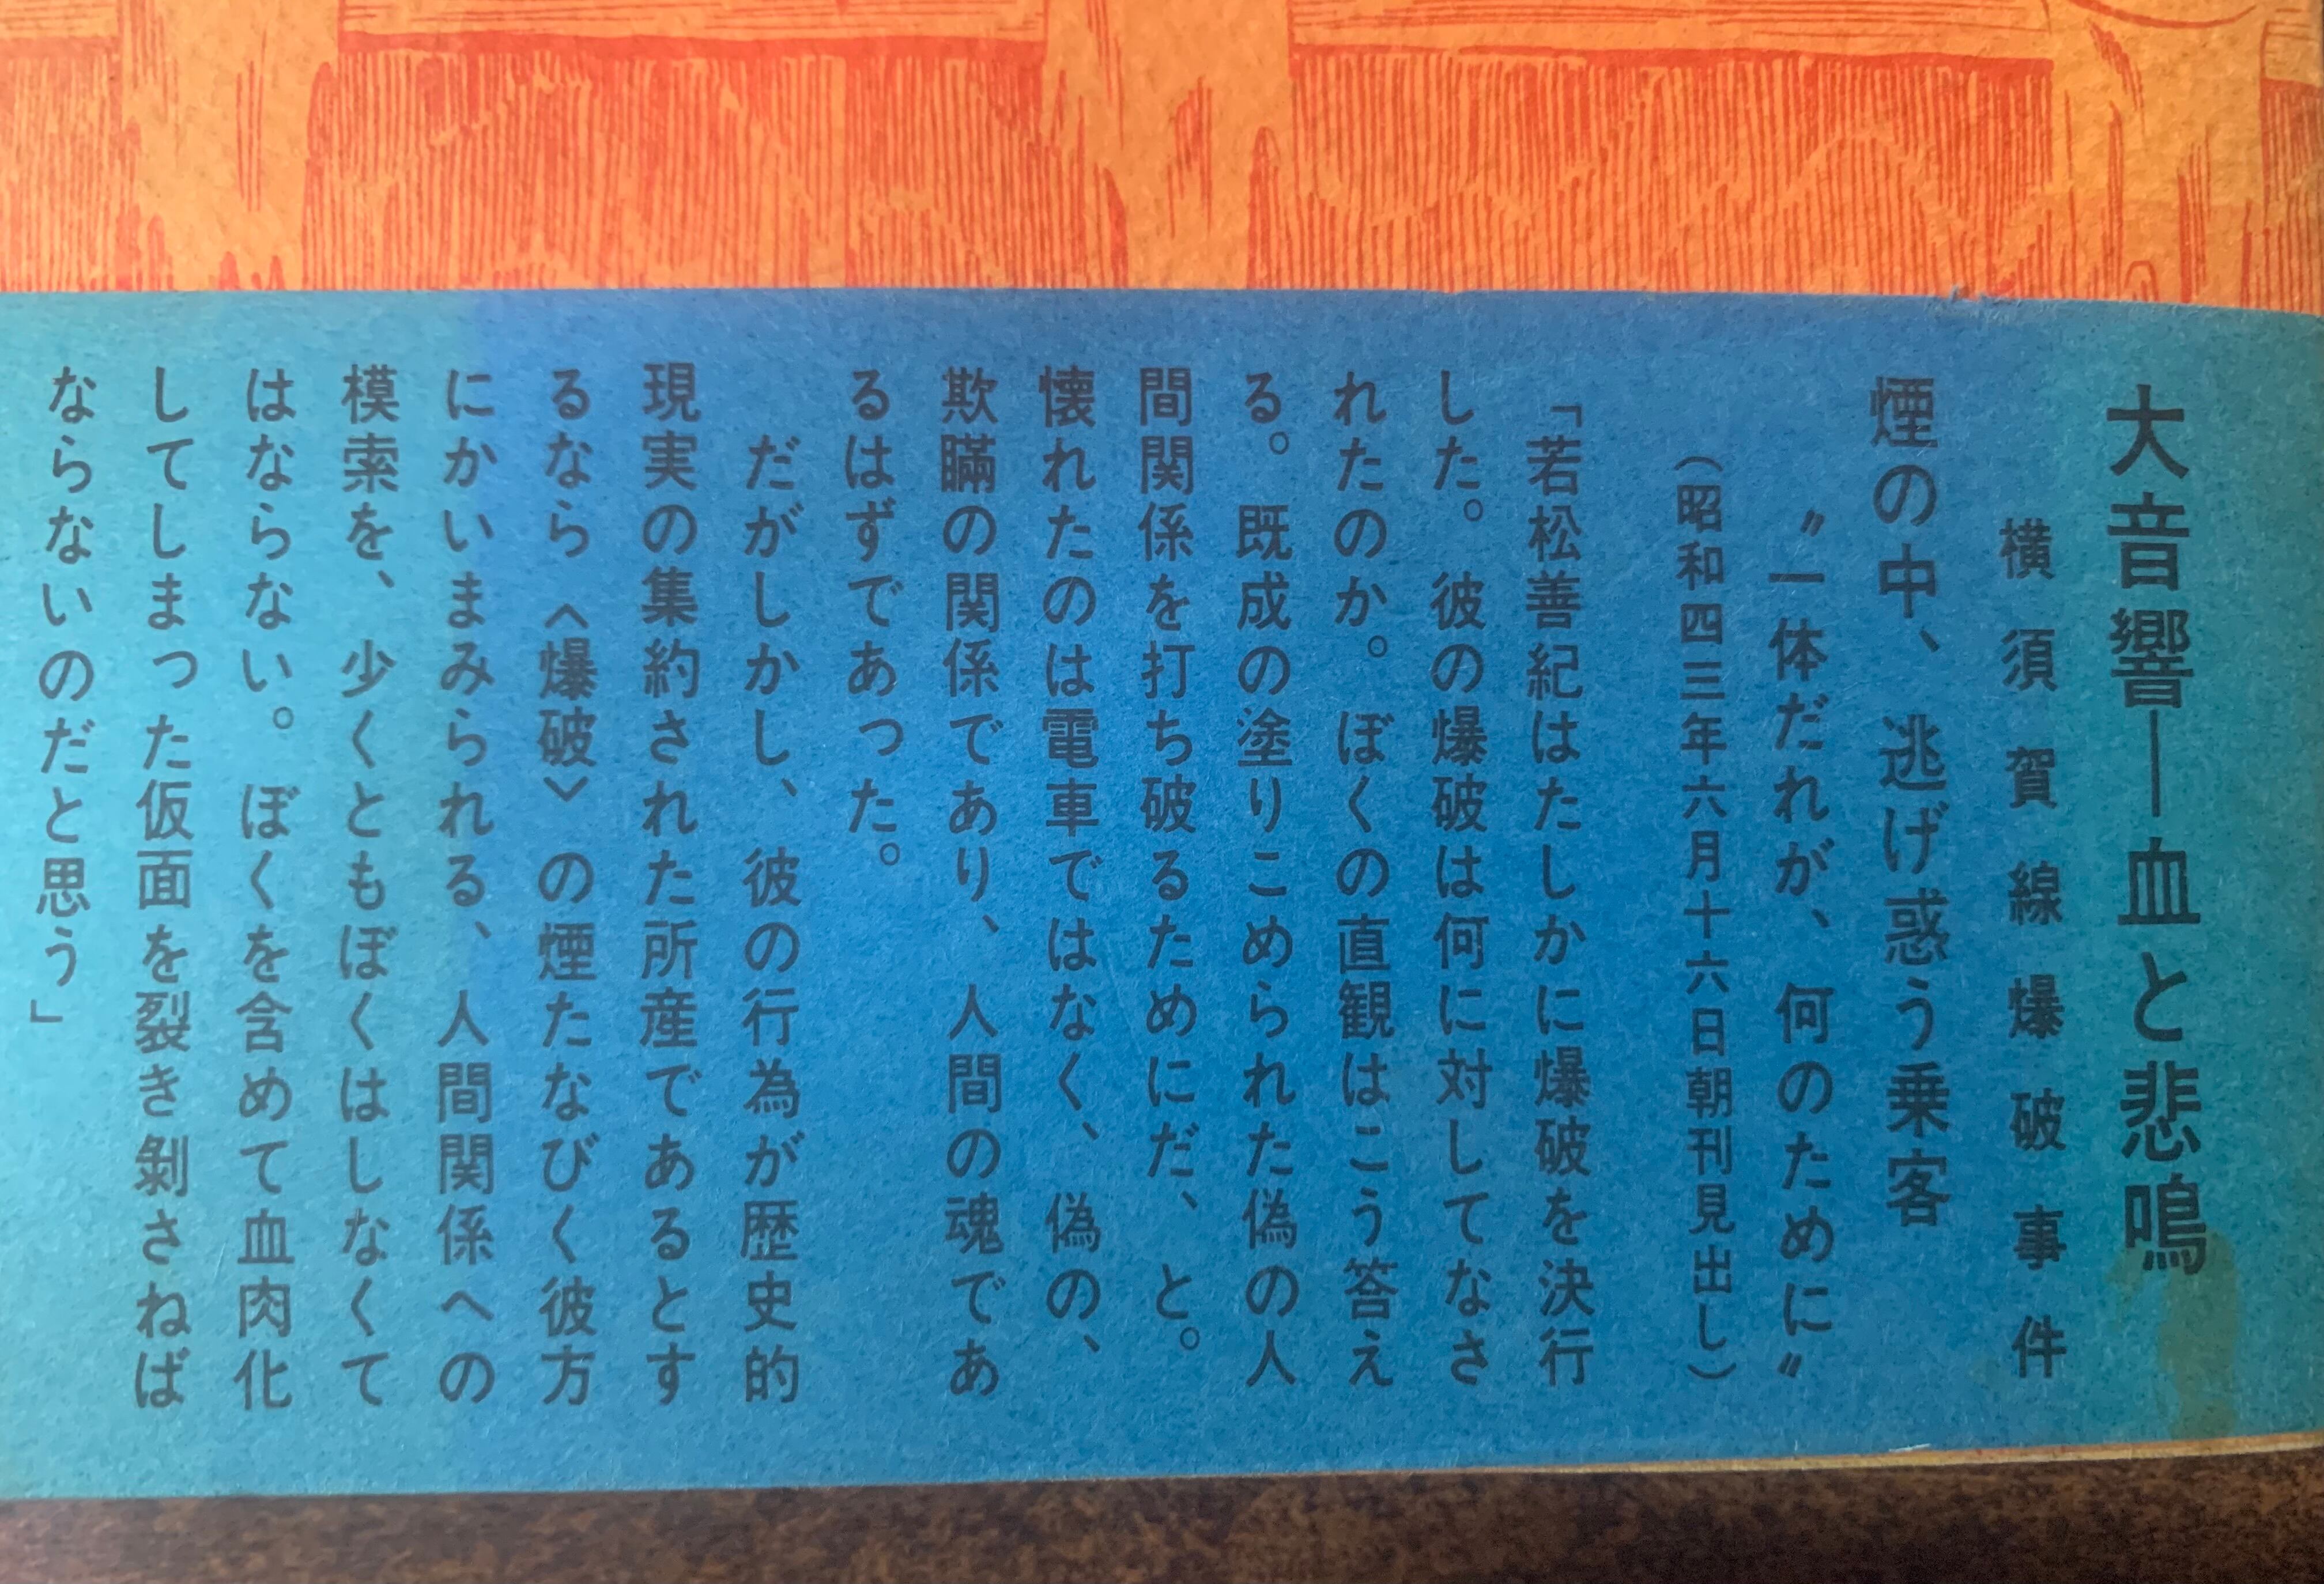 大音響―血と悲鳴
横須賀線爆破事件
煙の中、逃げ惑う乗客
〝一体だれが、何のために〟
（昭和四三年六月十六日朝刊見出し）
「若松善紀はたしかに爆破を決行
した。彼の爆破は何に対してなさ
れたのか。ぼくの直観はこう答え
る。既成の塗りこめられた偽の人
間関係を打ち破るためにだ、と。
懐れたのは電車ではなく、偽の、
欺瞞の関係であり、人間の魂であ
るはずであった。
だがしかし、彼の行為が歴史的
現実の集約された所産であるとす
るなら〈爆破〉の煙たなびく彼方
にかいまみられる、人間関係への
模索を、少くともぼくはしなくて
はならない。ぼくを含めて血肉化
してしまった仮面を裂き剝さねば
ならないのだと思う」